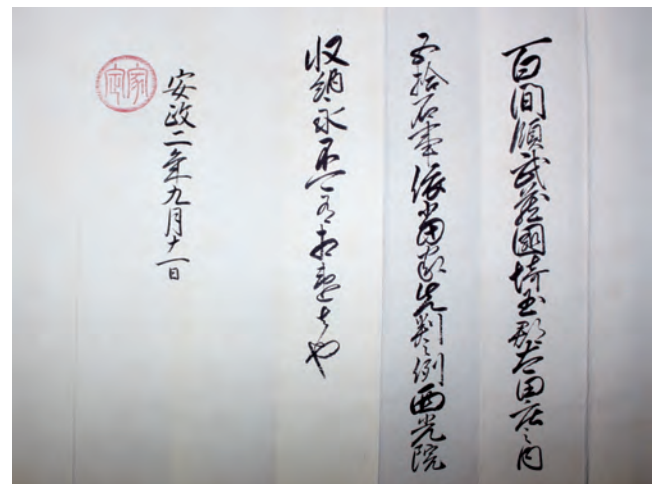 百間領武蔵國埼玉郡太田庄之内
五拾石事依當家先判之例西光院
収納永不可有相違者也
安政二年九月十一日
家定